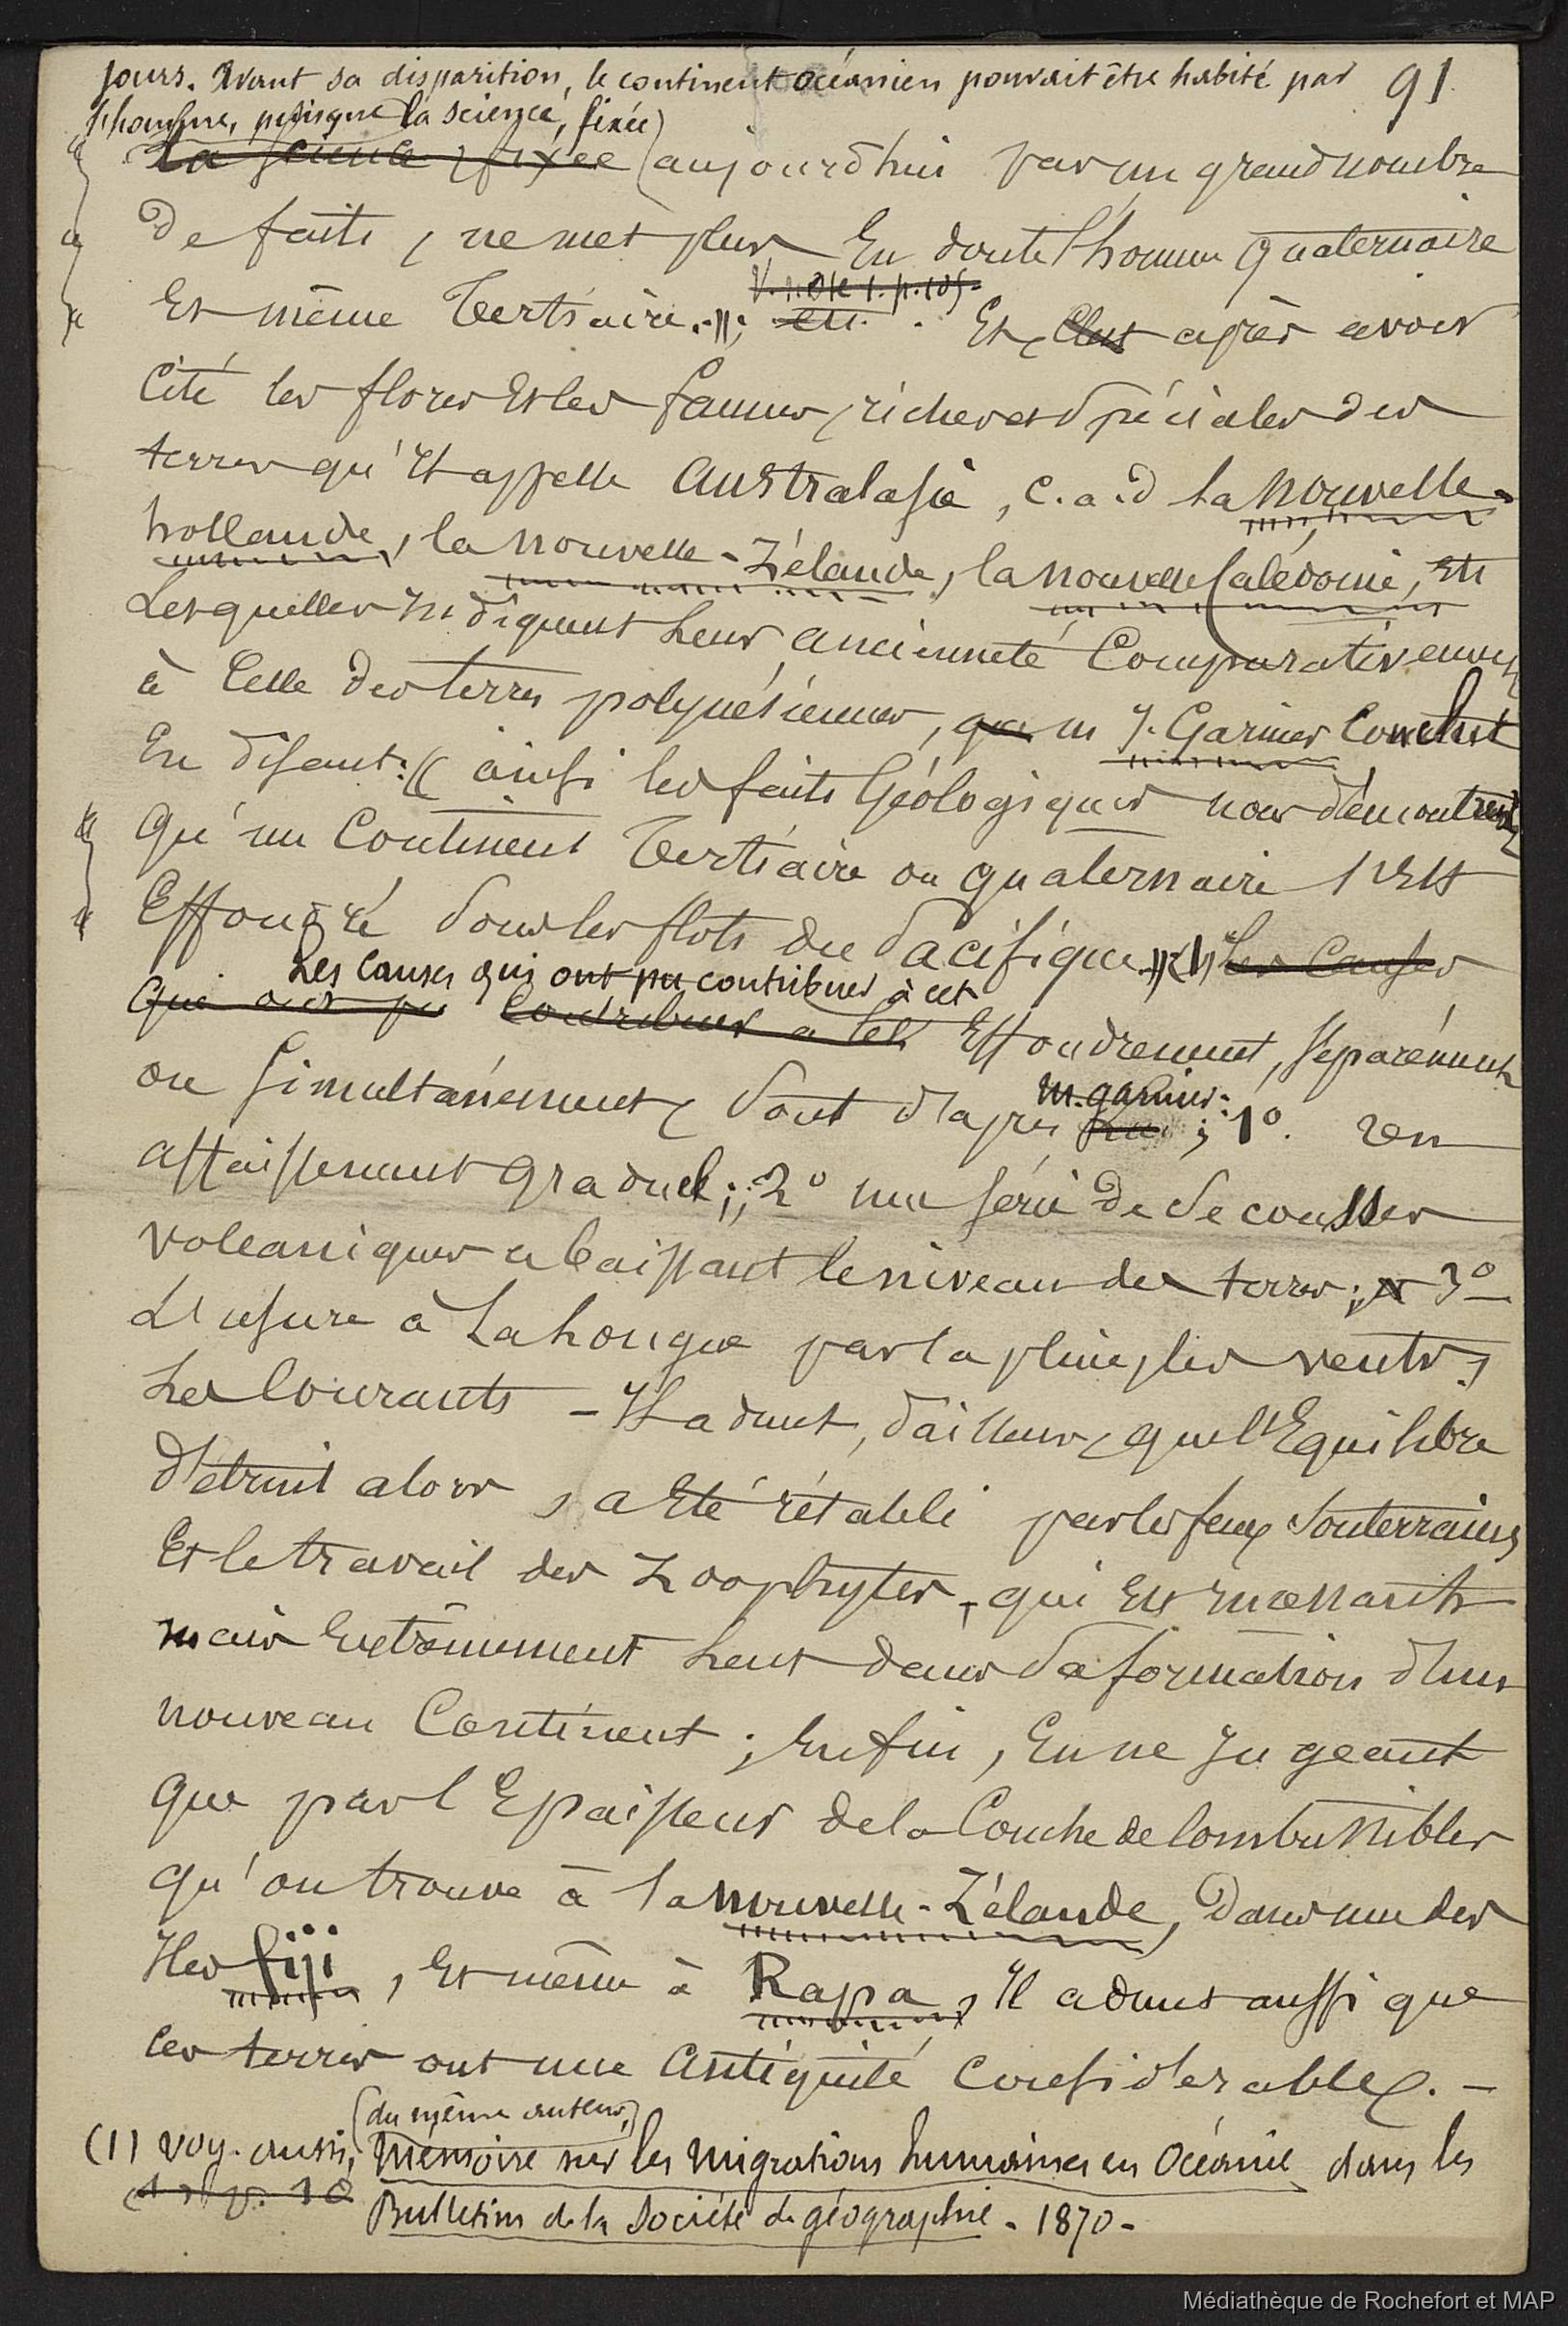 jours. Avant sa disparition, le continent océanien pouvait être habité par 91
l'homme, puisque la science, fixée
la science, fixée (aujourd'hui par un grand nombre
de faits, ne met plus en doute l'homme quaternaire
V. note 1. p. 105.
Et même Tertiaire. » ; Et, après avoir
Cité les flores et les faunes, riches et spéciales des
terres qu'il appelle Australasie, c. a. d la Nouvelle-
hollande, la nouvelle-Zélande, la nouvelle Calédonie, etc
Lesquelles indiquent leur ancienneté Comparativement
à Celle des terres polynésiennes, que m J. Garnier Conclut
En disant : « ainsi les faits Géologiques nous démontrent
Qu'un Continent Tertiaire ou quaternaire s'est
Effondré sous les flots du Pacifique » (1) Les Causes
Les Causes qui ont pu contribuer à cet
Qui ont pu Contribuer a cet Effondrement, séparément
m. garnier :
ou simultanément, sont d'après lui ; 1º. un
affaissement graduel ; 2º une série de secousses
volcaniques abaissant le niveau des terres ; et 3º
L'usure à la longue par la pluie, les vents,
Les Courants - Il admet, d'ailleurs, que l'Equilibre
détruit alors, a Eté rétabli par les feux souterrains
Et le travail des Zoophytes, qui Est incessant
mais Extrêmement lent dans la formation d'un
nouveau Continent ; Enfin, En ne jugeant
que par l'Epaisseur de la Couche de Combustibles
qu'on trouve à la Nouvelle-Zélande, Dans une des
Iles fiji, Et même à Rapa, Il admet aussi que
ces terres ont une Antiquité Considérable. -
(du même auteur,)
(1) voy. aussi, Mémoire sur les Migrations humaines en Océanie dans les
Bulletins de la Société de géographie - 1870 -
Médiathèque de Rochefort et MAP